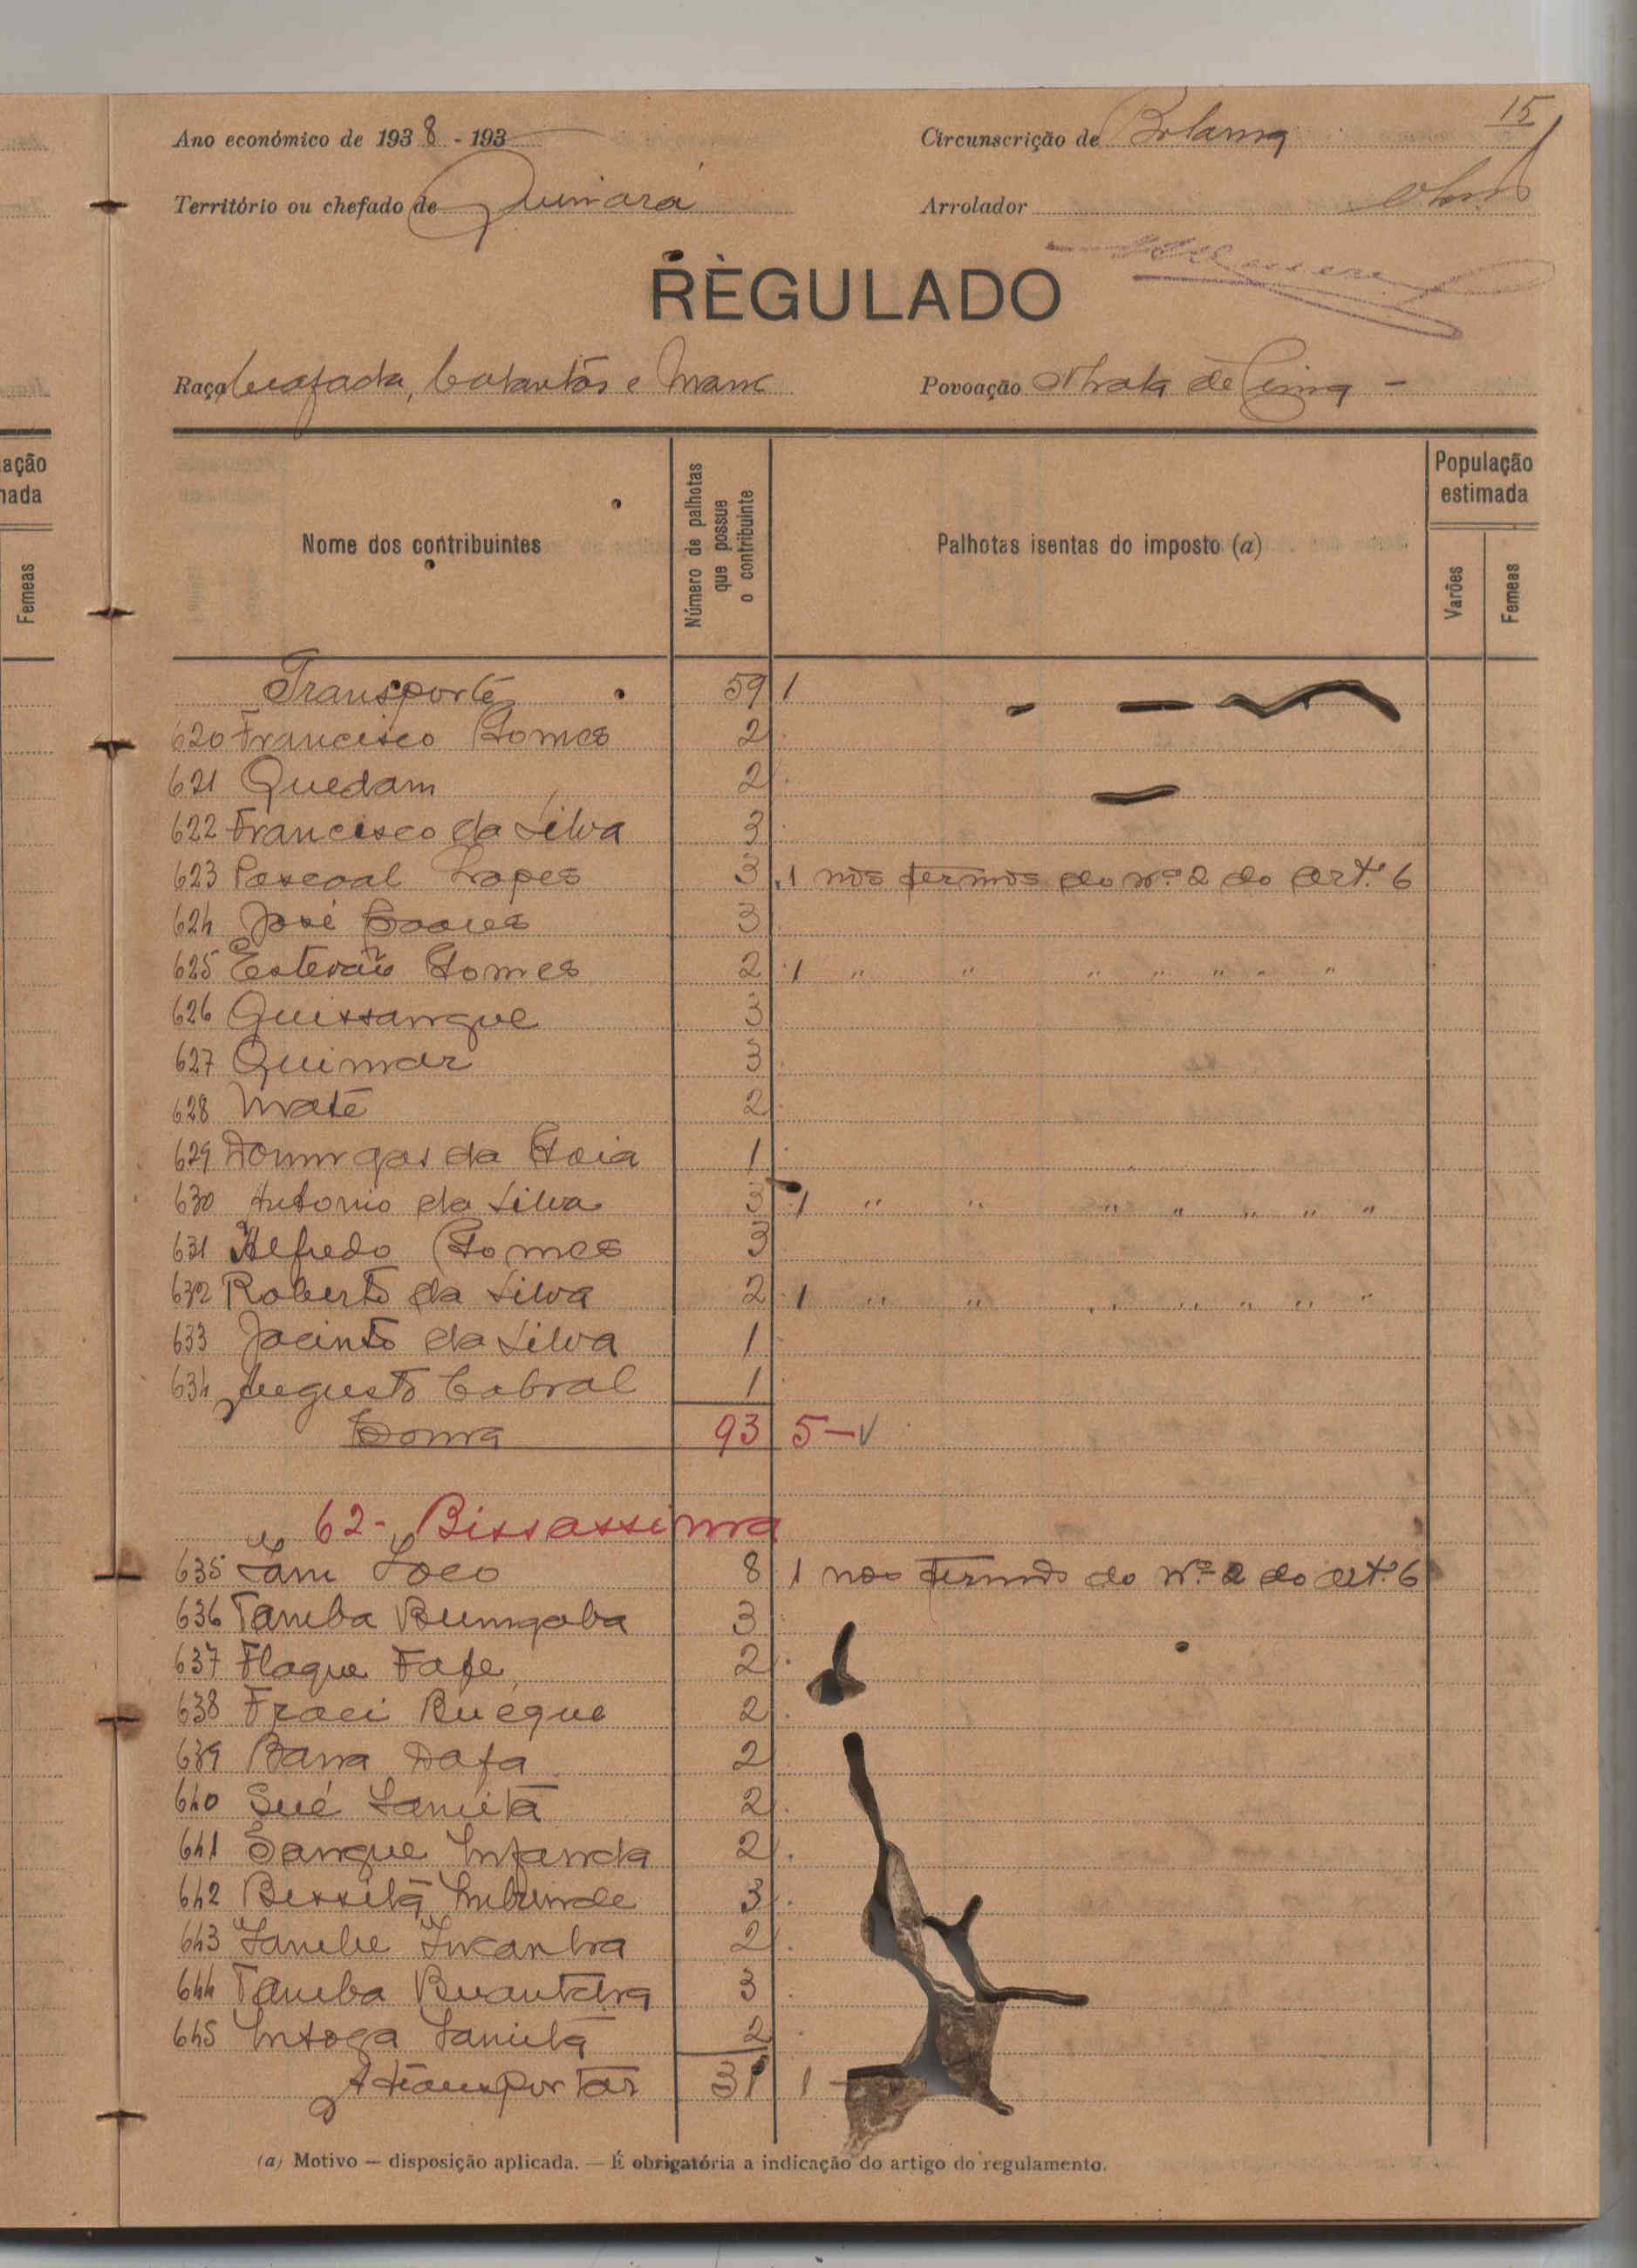 15
Ano económico de 1938 - 193
Circunscrição de Bolama
Território ou chefado de Quinará
Arrolador
REGULADO
Raça Beafada, Balantas e Manc
Povoação Nhala de Cima -
Nome dos contribuintes
Número de palhotas que possue o contribuinte
Palhotas isentas do imposto (a)
População estimada
Varões
Femeas
ação
nada
Femeas
Transporte 59 1
620 Francisco Gomes 2
621 Quedam 2
622 Francisco da Silva 3
623 Pascoal Lopes 3 1 nos termos do nº 2 do artº 6
624 José Soares 3
625 Estevão Gomes 2 1 " " " " " " "
626 Quissangue 3
627 Quimor 3
628 Maté 2
629 Domingas da Goia 1
630 Antonio da Silva 3 1 " " " " " " "
631 Alfredo Gomes 3
632 Roberto da Silva 2 1 " " " " " " "
633 Jacinto da Silva 1
634 Augusto Cabral 1
Soma 93 5 -
62 - Bissassema
635 Lam Loco 8 1 nos termos do nº 2 do artº 6
636 Tamba Bungaba 3
637 Flaque Fafe 2
638 Fraci Bueque 2
639 Bana Dafa 2
640 Sué Samitã 2
641 Sangue Infanda 2
642 Bessitã Imbunde 3
643 2
644 Tamba Buantdna 3
645 Intoga Samitã 2
A transportar 31 1 -
(a) Motivo — disposição aplicada. — É obrigatória a indicação do artigo do regulamento.